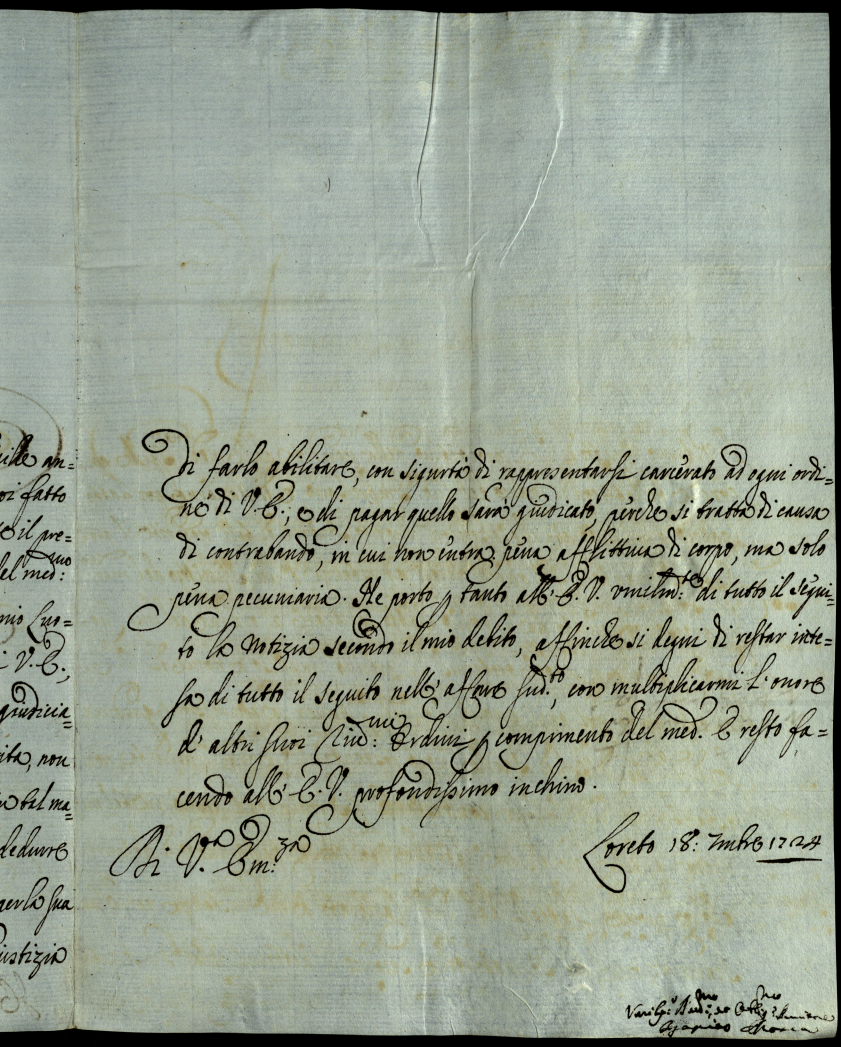 uille an=
oi fatto
e il pre=
del med:mo
mio Luo=
i V.E.,
giudicia=
ita, non
in tal ma=
dedurre
per la sua
iustizia
di farlo abilitare, con sigurtà di rappresentarsi carcerato ad ogni ordi=
ne di V.E., e di pagar quello sarà giudicato, perche si tratta di causa
di contrabando, in cui non entra pena afflittiva di corpo, ma solo
pena pecuniaria. Ne porto p tanto all' E.V. vmilm:te di tutto il segui=
to la Notizia secondo il mio debito, affinche si degni di restar inte=
sa di tutto il seguito nell' affare sud:to, con multiplicarmi l'onore
d' altri suoi Riv:mi Ordini p compimento del med. E resto fa=
cendo all' E.V. profondissimo inchino.
Di V.a Em:za
Loreto 18: 7mbre 1724
Agapito Mosca